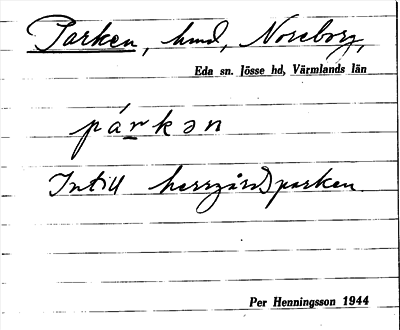 Parken, hmd, Noreborg,
Eda sn. Jösse hd, Värmlands län
párkən
Intill herrgårdsparken
Per Henningsson 1944